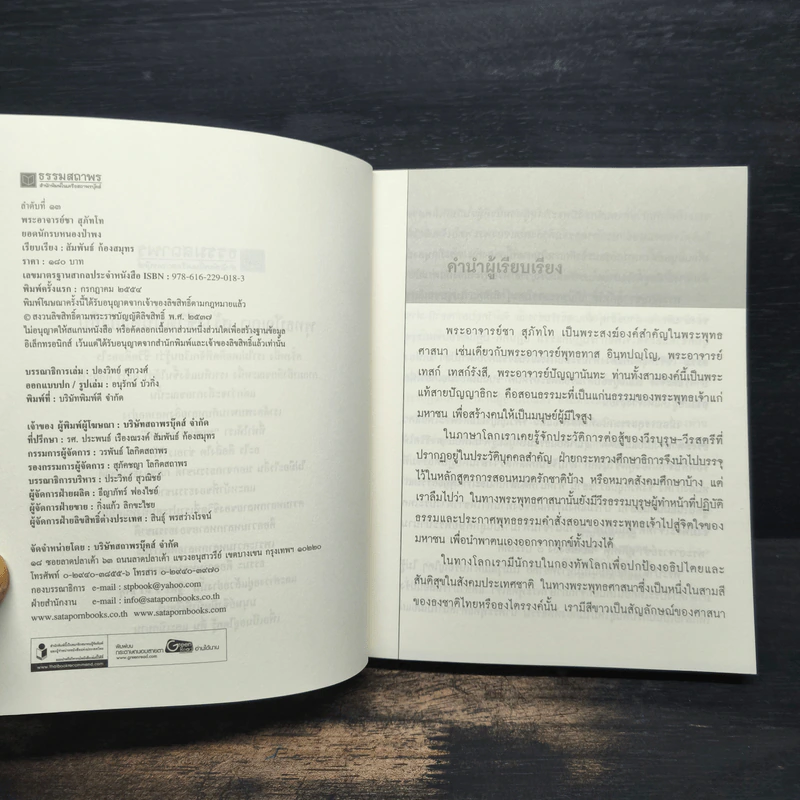 ธรรมสถาพร
สำนักพิมพ์ในเครือสถาพรบุ๊คส์
ลำดับที่ ๑๓
พระอาจารย์ชา สุภัทโท
ยอดนักรบหนองป่าพง
เรียบเรียง : สัมพันธ์ ก้องสมุทร
ราคา : ๑๘๐ บาท
เลขมาตรฐานสากลประจำหนังสือ ISBN : 978-616-229-018-3
พิมพ์ครั้งแรก : กรกฎาคม ๒๕๕๔
พิมพ์โฆษณาครั้งนี้ได้รับอนุญาตจากเจ้าของลิขสิทธิ์ตามกฎหมายแล้ว
© สงวนลิขสิทธิ์ตามพระราชบัญญัติลิขสิทธิ์ พ.ศ. ๒๕๓๗
ไม่อนุญาตให้สแกนหนังสือ หรือคัดลอกเนื้อหาส่วนหนึ่งส่วนใดเพื่อสร้างฐานข้อมูล
อิเล็กทรอนิกส์ เว้นแต่ได้รับอนุญาตจากสำนักพิมพ์และเจ้าของลิขสิทธิ์แล้วเท่านั้น
บรรณาธิการเล่ม : ปองวิทย์ ศุภวงศ์
ออกแบบปก / รูปเล่ม : อนุรักษ์ บัวกิ่ง
พิมพ์ที่ : บริษัทพิมพ์ดี จำกัด
เจ้าของ ผู้พิมพ์ผู้โฆษณา : บริษัทสถาพรบุ๊คส์ จำกัด
ที่ปรึกษา : รศ. ประพนธ์ เรืองณรงค์ สัมพันธ์ ก้องสมุทร
กรรมการผู้จัดการ : วรพันธ์ โลกิตสถาพร
รองกรรมการผู้จัดการ : สุภัคชญา โลกิตสถาพร
บรรณาธิการบริหาร : ประวิทย์ สุวณิชย์
ผู้จัดการฝ่ายผลิต : ธีญาภัทร์ ฟองไชย์
ผู้จัดการฝ่ายขาย : กิ่งแก้ว ลิกขะไชย
ผู้จัดการฝ่ายลิขสิทธิ์ต่างประเทศ : สินธุ์ พรสว่างโรจน์
จัดจำหน่ายโดย : บริษัทสถาพรบุ๊คส์ จำกัด
๑๘ ซอยลาดปลาเค้า ๖๓ ถนนลาดปลาเค้า แขวงอนุสาวรีย์ เขตบางเขน กรุงเทพฯ ๑๐๒๒๐
โทรศัพท์ ๐-๒๙๔๐-๓๘๕๕-๖ โทรสาร ๐-๒๙๔๐-๓๙๗๐
กองบรรณาธิการ e-mail : stpbook@yahoo.com
ฝ่ายสำนักงาน e-mail : info@satapornbooks.com
www.satapornbooks.co.th www.satapornbooks.com
www.thaibooksrecommend.com
พิมพ์บน
กระดาษถนอมสายตา
www.greenread.com
Green
Read
อ่านได้นาน
คำนำผู้เรียบเรียง
พระอาจารย์ชา สุภัทโท เป็นพระสงฆ์องค์สำคัญในพระพุทธ
ศาสนา เช่นเดียวกับพระอาจารย์พุทธทาส อินฺทปญฺโญ, พระอาจารย์
เทสก์ เทสก์รังสี, พระอาจารย์ปัญญานันทะ ท่านทั้งสามองค์นี้เป็นพระ
แท้สายปัญญาธิกะ คือสอนธรรมะที่เป็นแก่นธรรมของพระพุทธเจ้าแก่
มหาชน เพื่อสร้างคนให้เป็นมนุษย์ผู้มีใจสูง
ในภาษาโลกเราเคยรู้จักประวัติการต่อสู้ของวีรบุรุษ-วีรสตรีที่
ปรากฏอยู่ในประวัติบุคคลสำคัญ ฝ่ายกระทรวงศึกษาธิการจึงนำไปบรรจุ
ไว้ในหลักสูตรการสอนหมวดรักชาติบ้าง หรือหมวดสังคมศึกษาบ้าง แต่
เราลืมไปว่า ในทางพระพุทธศาสนานั้นยังมีวีรธรรมบุรุษผู้ทำหน้าที่ปฏิบัติ
ธรรมและประกาศพุทธธรรมคำสั่งสอนของพระพุทธเจ้าไปสู่จิตใจของ
มหาชน เพื่อนำพาตนเองออกจากทุกข์ทั้งปวงได้
ในทางโลกเรามีนักรบในกองทัพโลกเพื่อปกป้องอธิปไตยและ
สันติสุขในสังคมประเทศชาติ ในทางพระพุทธศาสนาซึ่งเป็นหนึ่งในสามสี
ของธงชาติไทยหรือธงไตรรงค์นั้น เรามีสีขาวเป็นสัญลักษณ์ของศาสนา